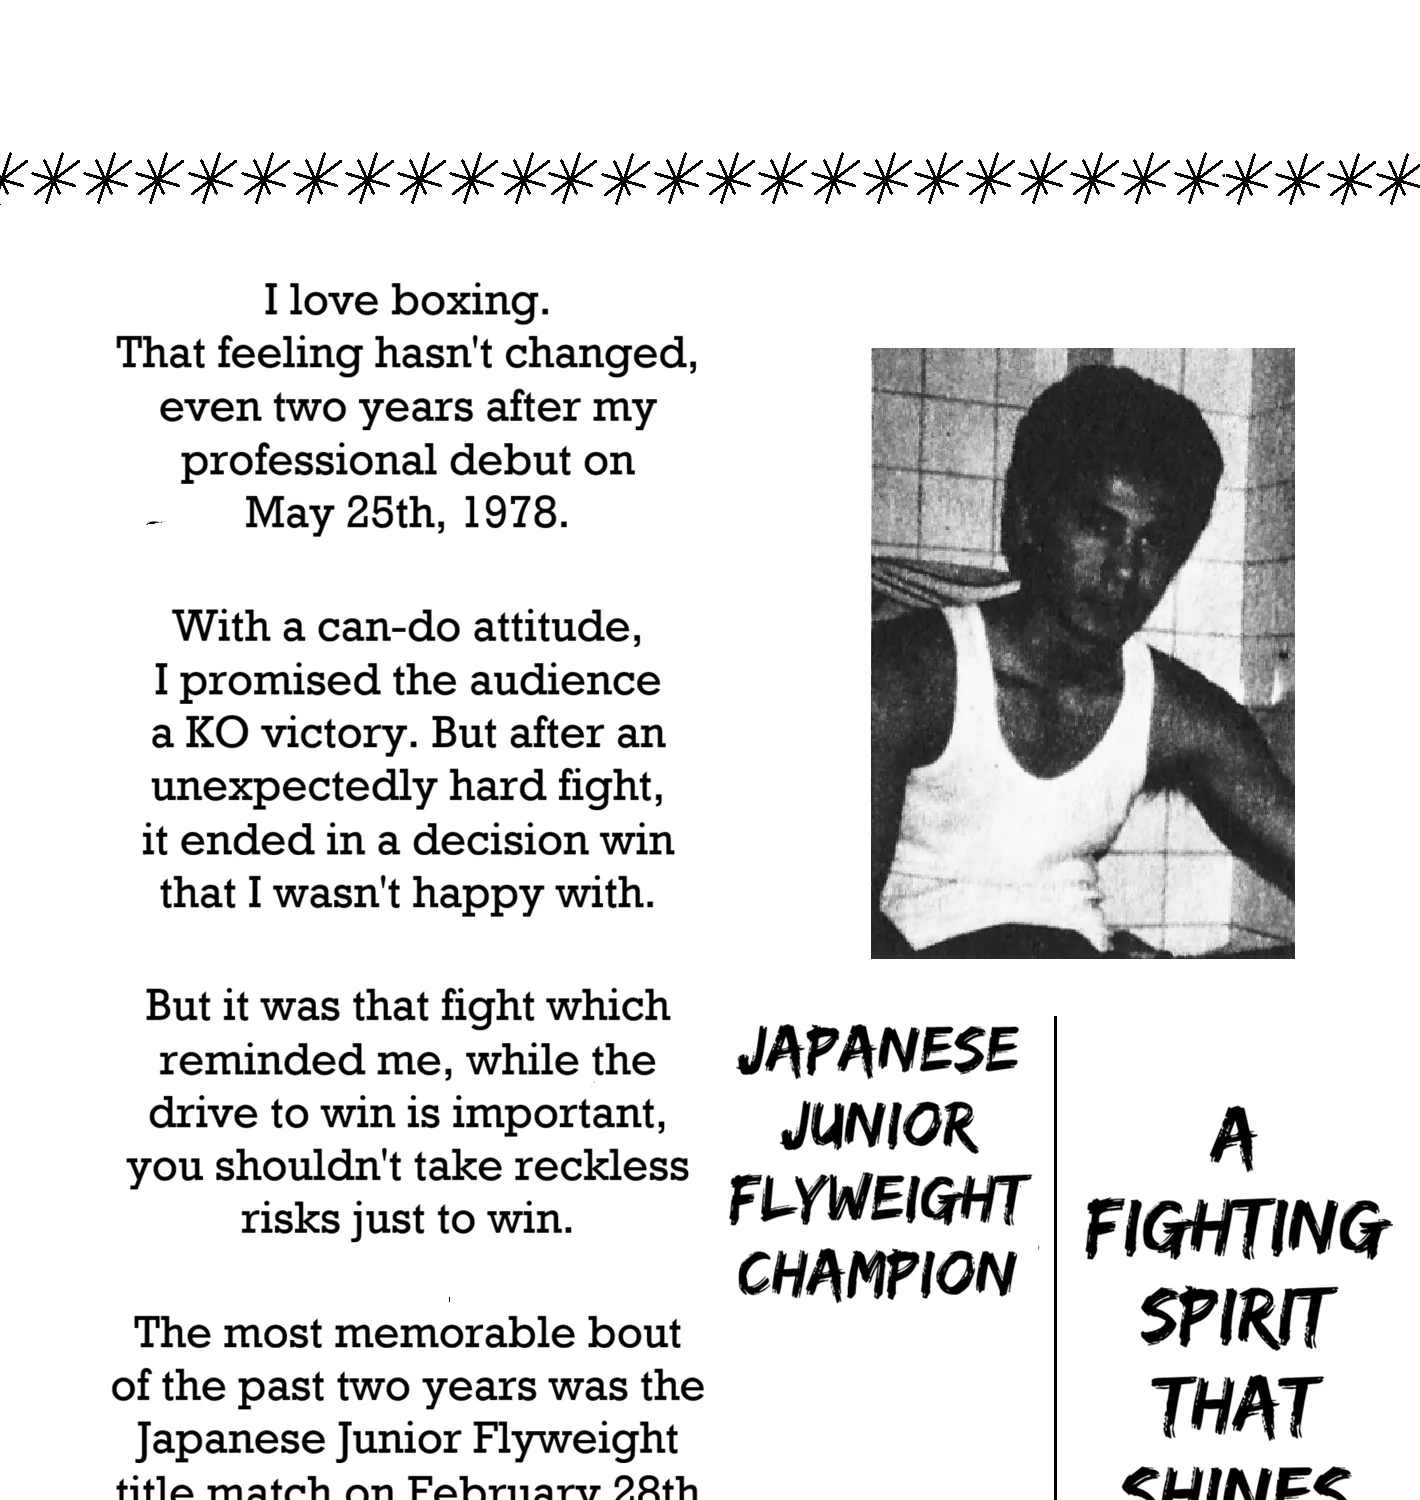 I love boxing.
That feeling hasn't changed,
even two years after my
professional debut on
May 25th, 1978.
With a can-do attitude,
I promised the audience
a KO victory. But after an
unexpectedly hard fight,
it ended in a decision win
that I wasn't happy with.
But it was that fight which
reminded me, while the
drive to win is important,
you shouldn't take reckless
risks just to win.
The most memorable bout
of the past two years was the
Japanese Junior Flyweight
title match on February 28th
JAPANESE
JUNIOR
FLYWEIGHT
CHAMPION
A
FIGHTING
SPIRIT
THAT
SHINES